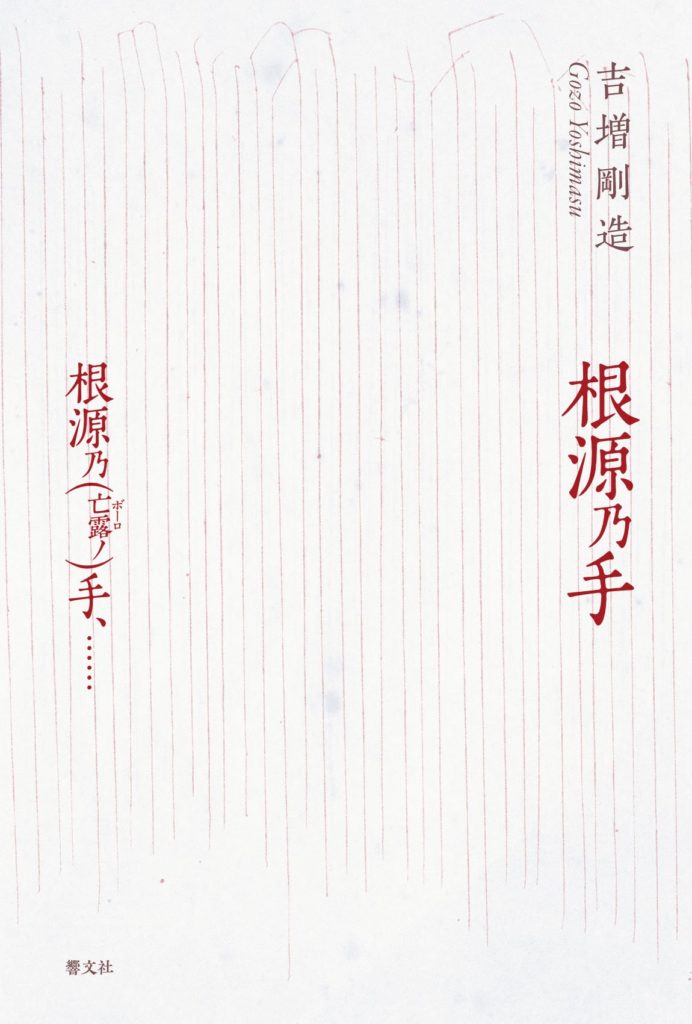 吉増剛造
Gozo Yoshimasu
根源乃手
根源乃(亡露ノ)手、……
ボーロ
響文社